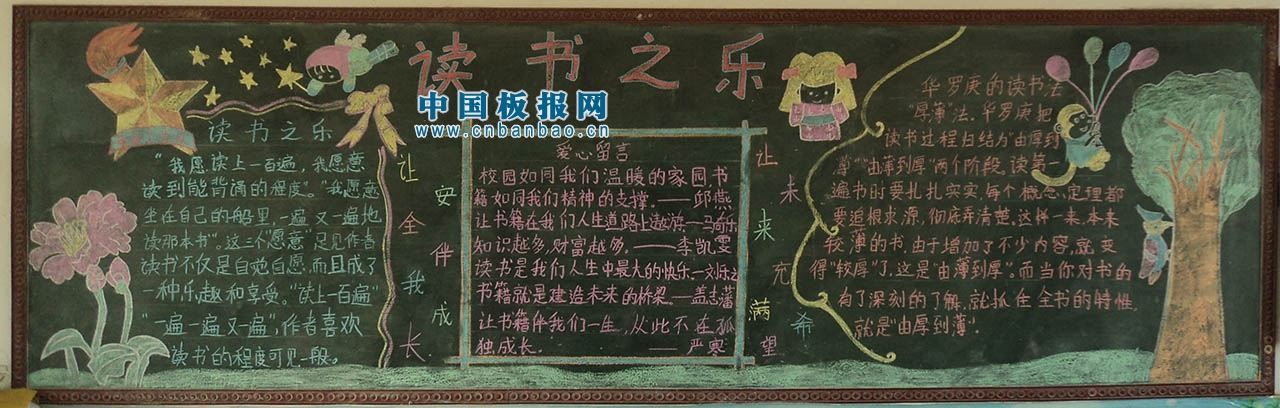 读书之乐
中国板报网
www.cnbanbao.cn
读书之乐
"我愿读上一百遍,我愿意
读到能背诵的程度"。"我愿意
坐在自己的船里,一遍又一遍地
读那本书"。这三个"愿意"足见作者
读书不仅是自觉自愿,而且成了
一种乐趣和享受。"读上一百遍"
"一遍一遍又一遍",作者喜欢
读书的程度可见一般。
让安全伴我成长
爱心留言
校园如同我们温暖的家园,书
籍如同我们精神的支撑。——邱燕
让书籍在我们人生道路上遨洪—马
知识越多,财富越多。——李凯雯
读书是我们人生中最大的快乐—刘乐之
书籍就是建造未来的桥梁。—盖志藩
让书籍伴我们一生,从此不在孤
独成长。——严寒
让未来充满希望
华罗庚的读书法
厚薄法。华罗庚把
读书过程归结为"由厚到
薄""由薄到厚"两个阶段。读第一
遍书时要扎扎实实,每个概念、定理都
要追根求源,彻底弄清楚。这样一来,本来
较薄的书,由于增加了不少内容,就变
得"较厚"了,这是"由薄到厚"。而当你对书的
有了深刻的了解,就抓住全书的特性,
就是"由厚到薄"。